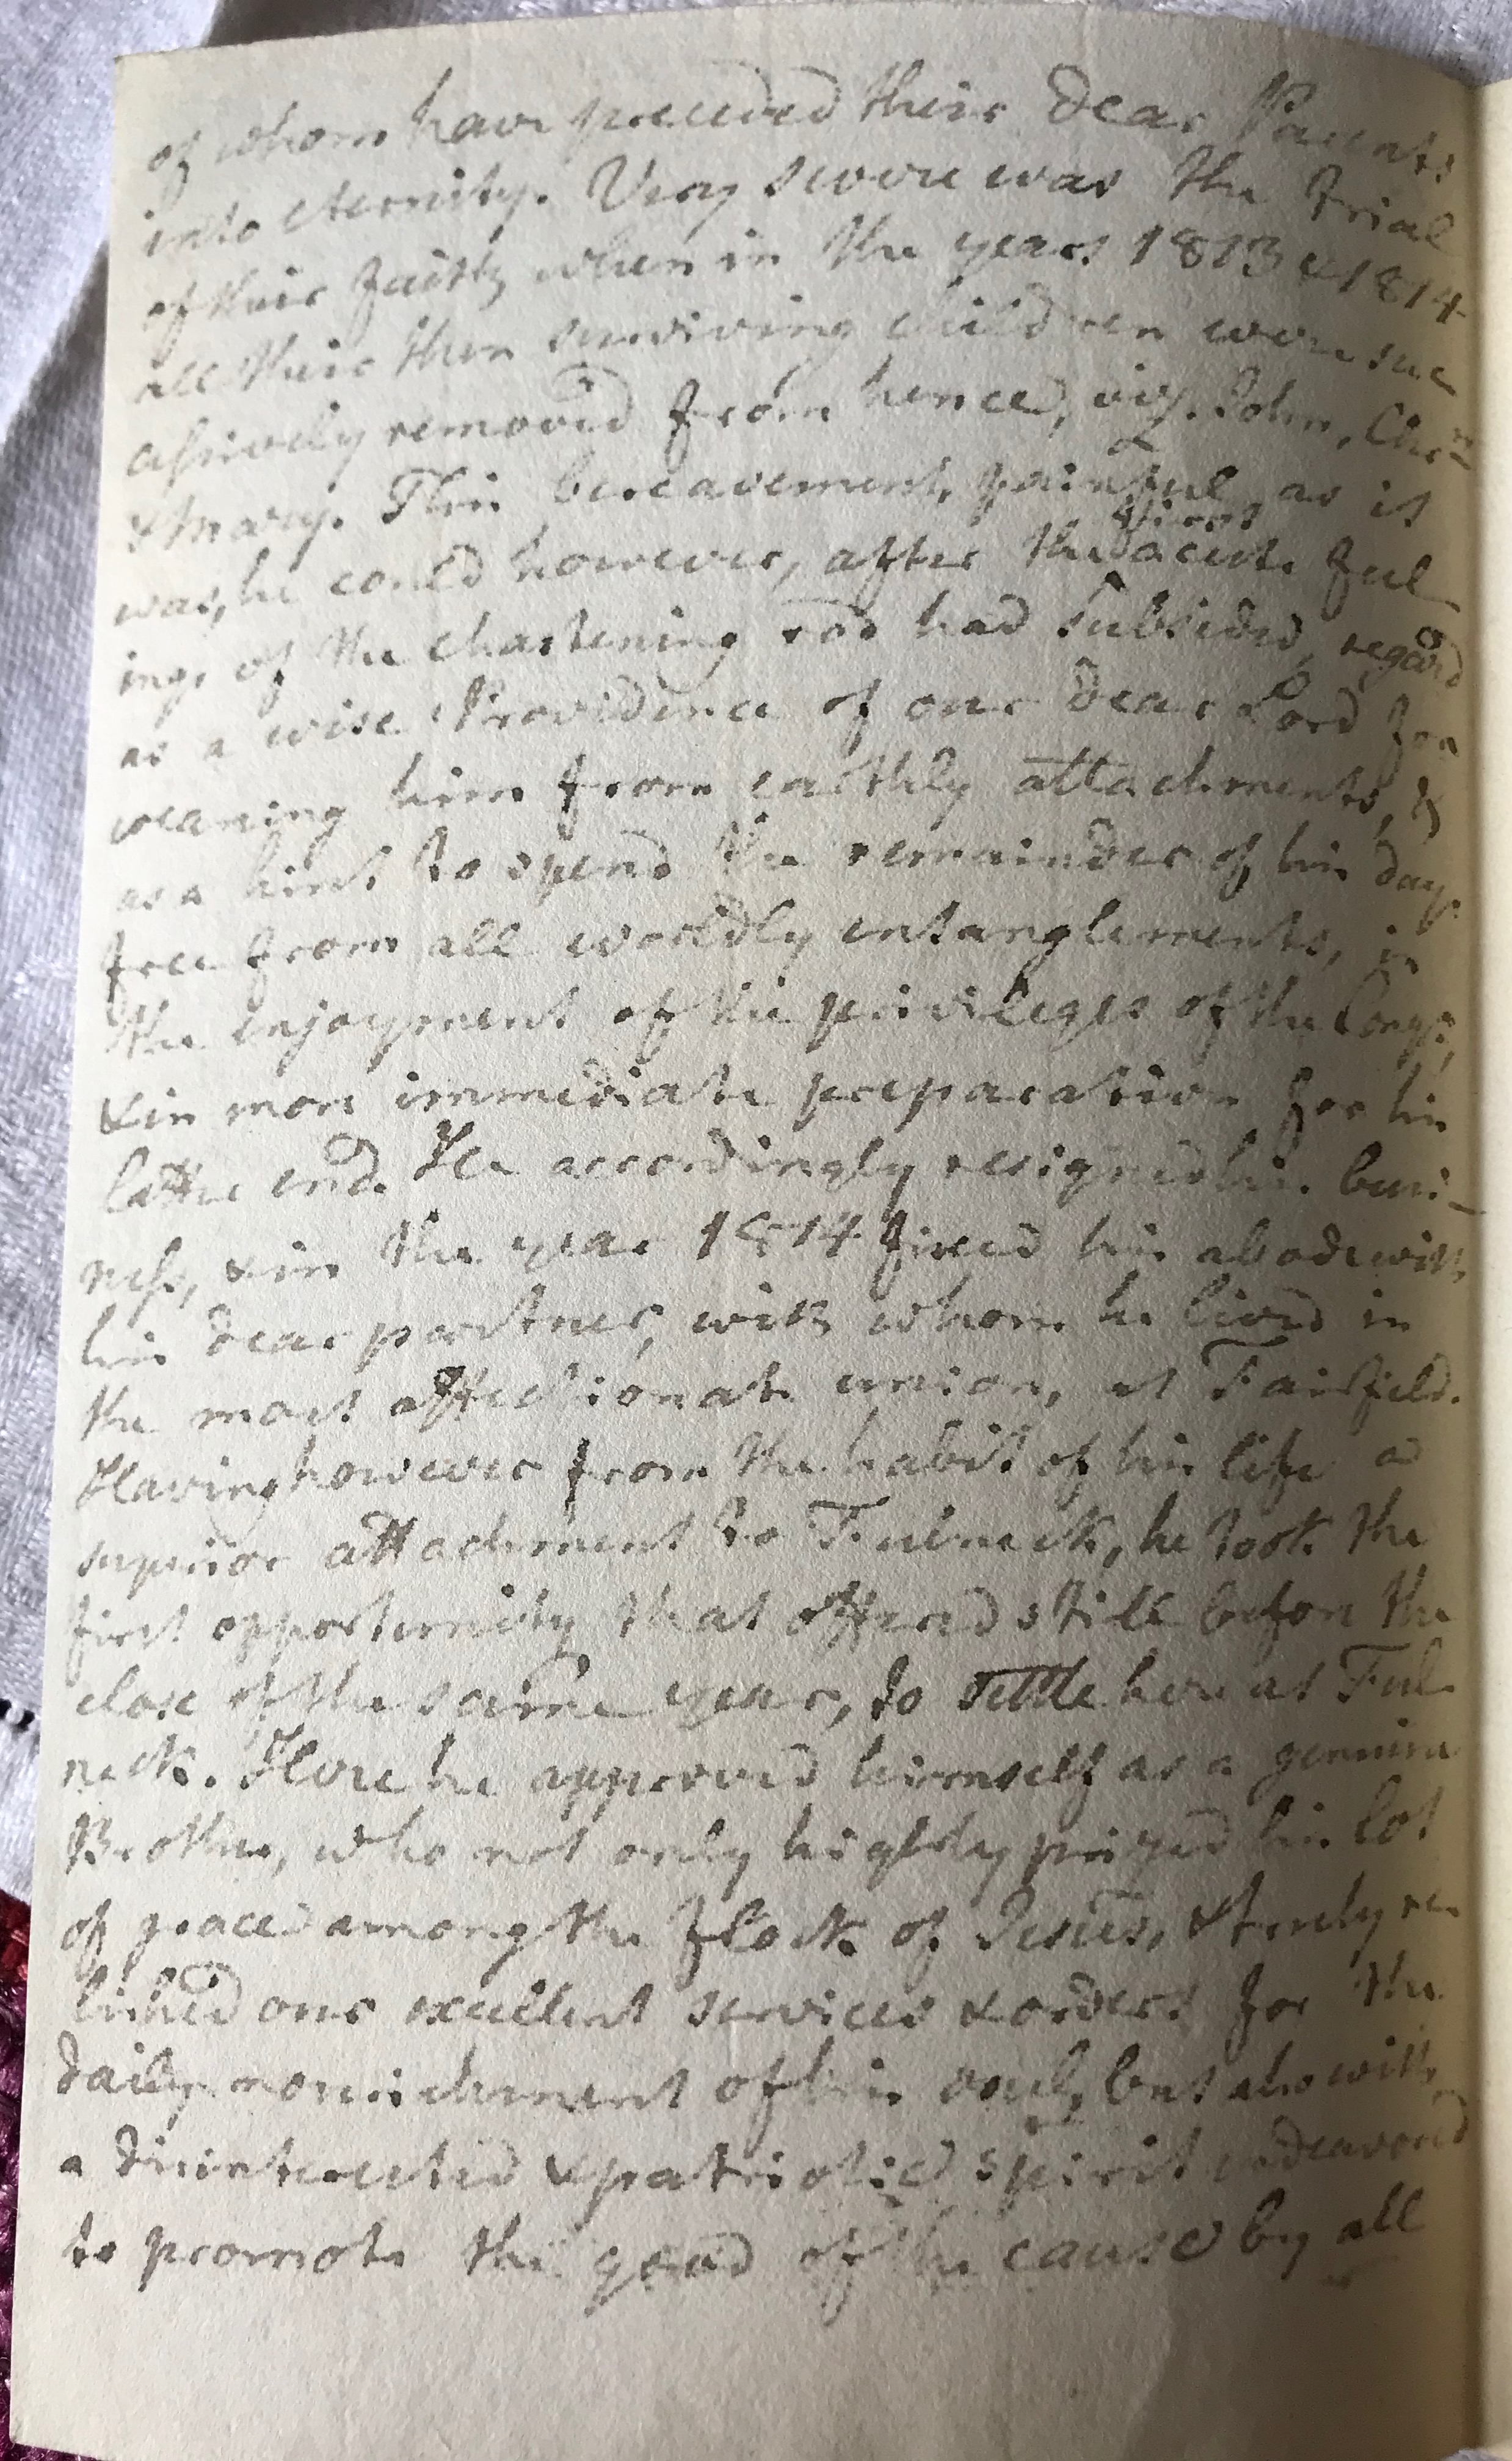 of whom have preceded their Dear Parents
into eternity. Very severe was the trial
of their faith when in the years 1813 & 1814
all their then surviving children were suc
cessively removed from hence, viz. John, Chrn
& Mary. This bereavement, painful as it
was, he could however, after the first acute feel
ings of the chastening rod had subsided, regard
as a wise Providence of our dear Lord for
weaning him from earthly attachments, &
as a hint to spend the remainder of his days
free from all worldly entanglements, in
the enjoyment of the privileges of the Congn,
& in more immediate preparation for his
latter end. He accordingly resigned his busi-
ness, & in the year 1814 fixed his abode with
his dear partner, with whom he lived in
the most affectionate union, at Fairfield.
Having however from the habit of his life a
superior attachment to Fulneck, he took the
first opportunity that offered still before the
close of the same year, to settle here at Ful
neck. Here he approved himself as a genuine
Brother, who not only highly prized his lot
of grace among the flock of Jesus, & truly re-
lished our excellent services & orders for the
daily nourishment of his soul, but also with
a disinterested & patriotic spirit endeavored
to promote the good of the cause by all